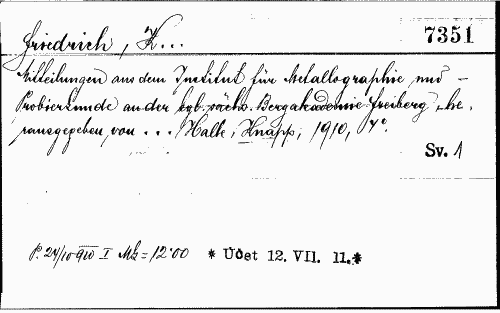 Friedrich, K...
7351
Mitteilungen aus dem Institut für Metallographie und
Probierkunde an der kgl. sächs. Bergakademie Freiberg, he-
rausgegeben von ... Halle, Knapp, 1910, 4°.
Sv. 1
P. 24/10 910 I Mk = 12·00 * Účet 12. VII. 11.*